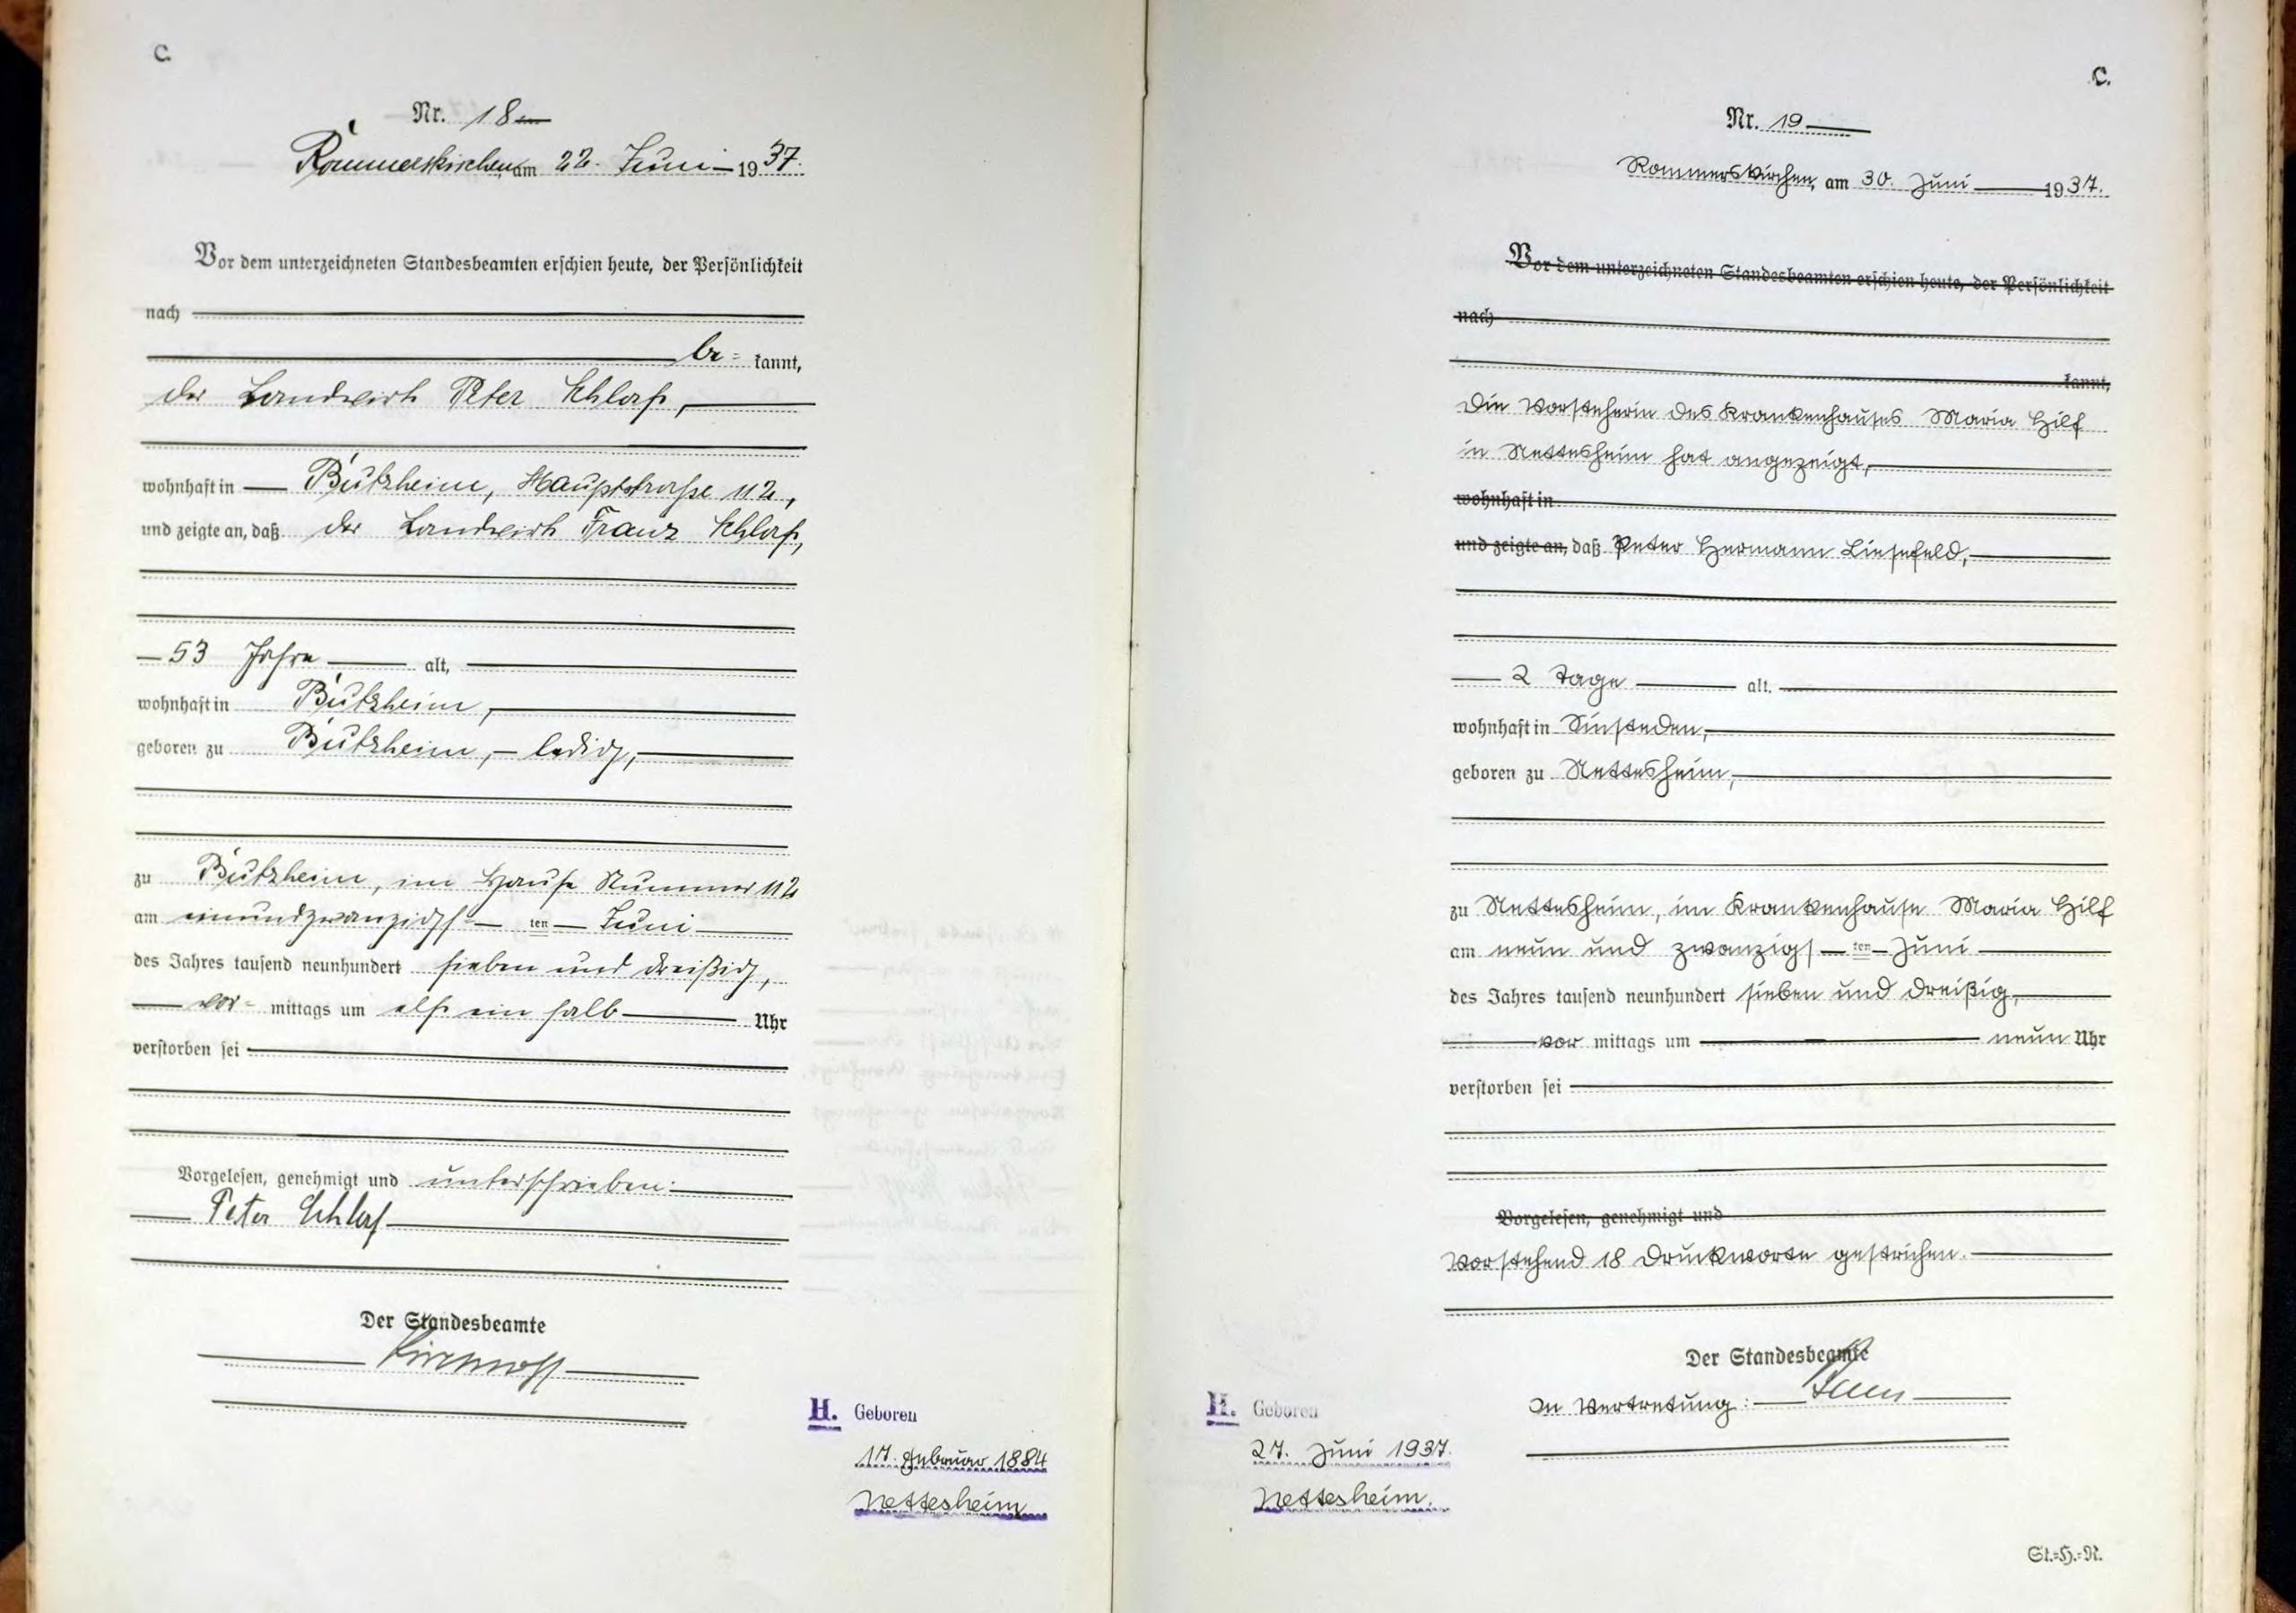 C.
Nr. 18
Rommerskirchen, am 22. Juni 1937.
Vor dem unterzeichneten Standesbeamten erschien heute, der Persönlichkeit
nach
be= kannt,
der Landwirt Peter Schlaf,
wohnhaft in Butzheim, Hauptstraße 112,
und zeigte an, daß der Landwirt Franz Schlaf,
53 Jahre alt,
wohnhaft in Butzheim,
geboren zu Butzheim, ledig,
zu Butzheim, im Hause Nummer 112
am einundzwanzigs ten Juni
des Jahres tausend neunhundert sieben und dreißig,
vor= mittags um elf ein halb Uhr
verstorben sei
Vorgelesen, genehmigt und unterschrieben:
Peter Schlaf
Der Standesbeamte
H. Geboren
17. Februar 1884
Nettesheim
C.
Nr. 19
Rommerskirchen, am 30. Juni 1937.
Vor dem unterzeichneten Standesbeamten erschien heute, der Persönlichkeit
nach
kannt,
Die Vorsteherin des Krankenhauses Maria Hilf
in Nettesheim hat angezeigt,
wohnhaft in
und zeigte an, daß Peter Hermann Liesefeld,
2 Tage alt.
wohnhaft in Sinsteden,
geboren zu Nettesheim,
zu Nettesheim, im Krankenhause Maria Hilf
am neun und zwanzigs ten Juni
des Jahres tausend neunhundert sieben und dreißig,
vor mittags um neun Uhr
verstorben sei
Vorgelesen, genehmigt und
Vorstehend 18 Druckworte gestrichen.
Der Standesbeamte
In Vertretung:
H. Geboren
27. Juni 1937.
Nettesheim.
St.=H.=R.